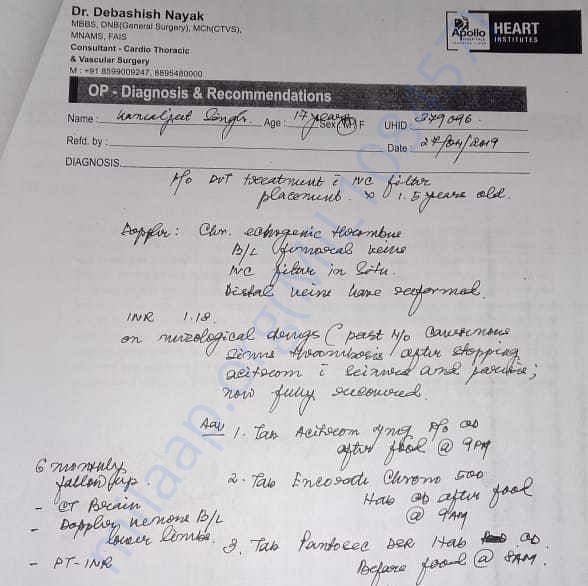 Dr. Debashish Nayak
MBBS, DNB(General Surgery), MCh(CTVS),
MNAMS, FAIS
Consultant - Cardio Thoracic
& Vascular Surgery
M : +91 8599009247, 8895480000
Apollo
HOSPITALS
HEART
INSTITUTES
OP - Diagnosis & Recommendations
Name : Singh Age : 17 years Sex M F UHID : 379096
Refd. by : Date : 27/04/2019
DIAGNOSIS
H/o DVT treatment c̄ IVC filter
placement x 1.5 years old.
Doppler: Chr. echogenic thrombus
B/L femoral veins
IVC filter in situ.
Distal veins have reformed.
INR 1.18
on neurological drugs (past H/o Cavernous
Sinus thrombosis after stopping
acitrom c̄ seizures and paresis;
now fully recovered.
Adv 1. Tab Acitrom 4mg P/o OD
after food @ 9PM
2. Tab Encorate Chrono 500
1tab OD after food
@ 9AM
3. Tab Pantocec DSR 1tab OD
Before food @ 8AM.
6 monthly
follow up.
- CT Brain
- Doppler venous B/L
lower limbs.
- PT-INR
milaap.org